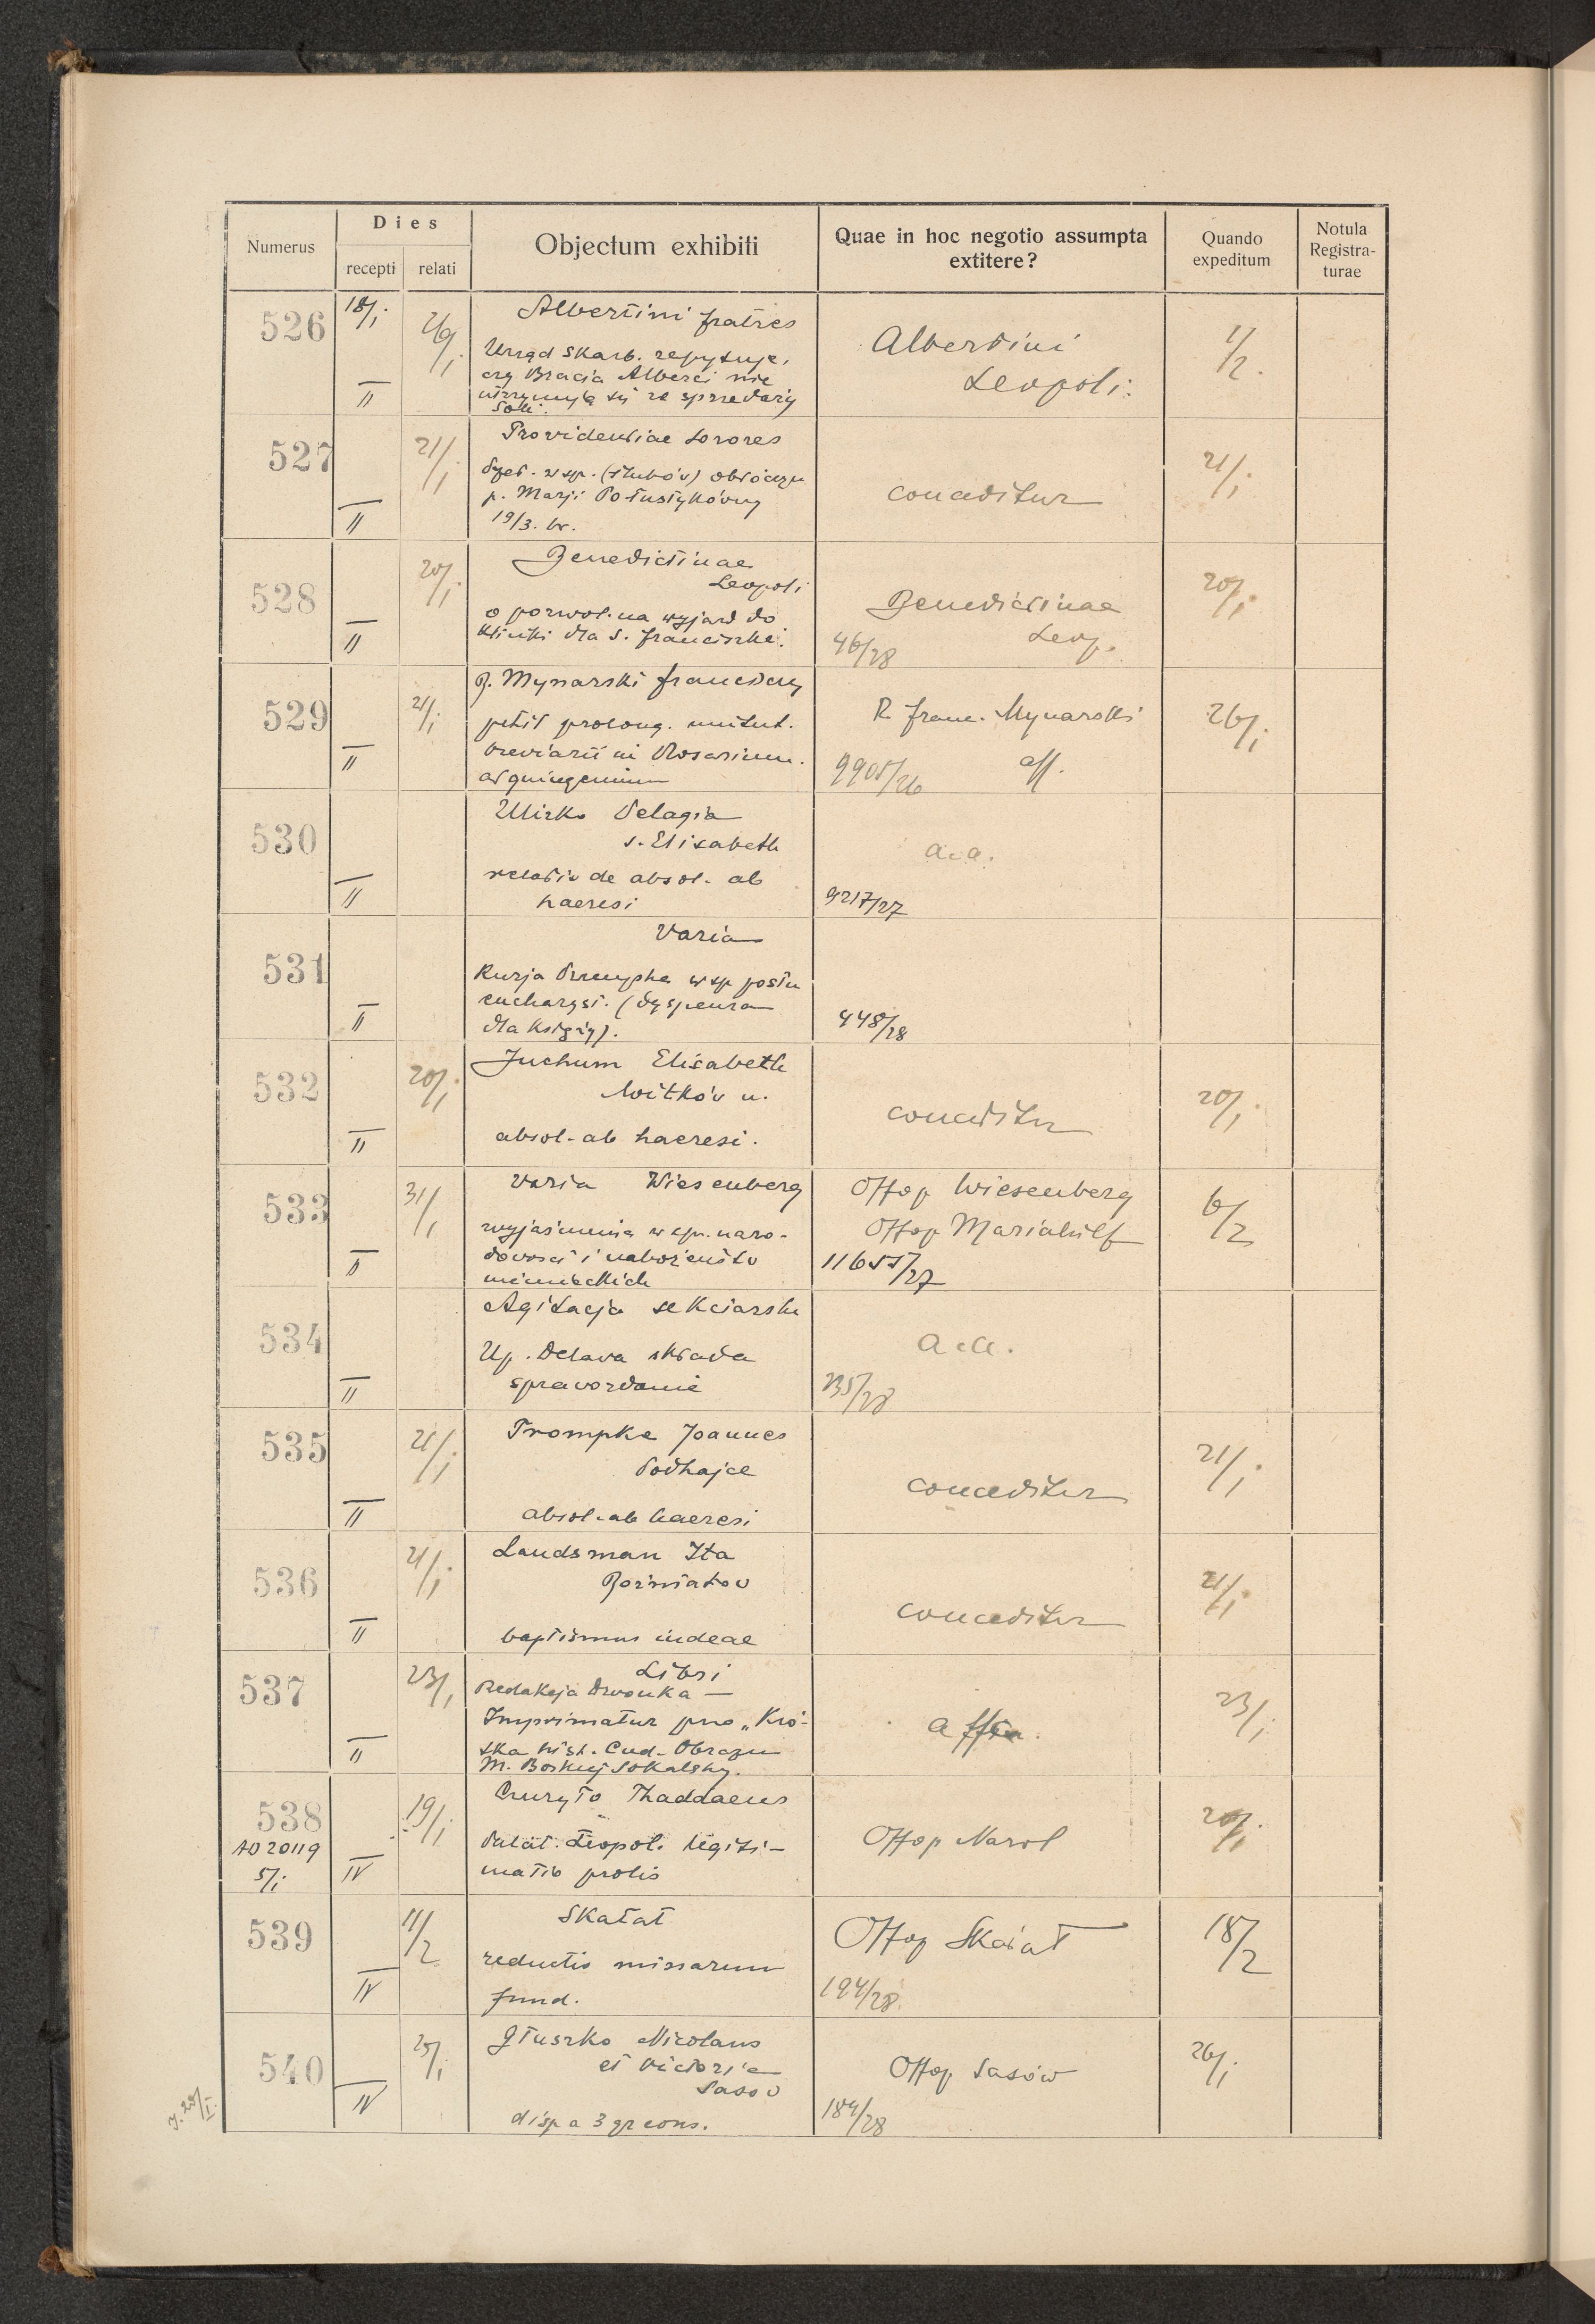 Numerus
Dies
recepti
relati
Objectum exhibiti
Quae in hoc negotio assumpta
extitere?
Quando
expeditum
Notula
Registra-
turae
526
18/I
26/I
II
Albertini fratres
Urząd skarb. zapytuje,
czy Bracia Alberci nie
utrzymują się ze sprzedaży
soli.
Albertini
Leopoli.
1/2.
527
21/I
II
Providentiae sorores
wsp. (ślubów) obłóczyn
p. Marji
19/3. br.
conceditur
21/I
528
20/I
II
Benedictinae
Leopoli
o pozwol. na wyjazd do
kliniki dla s. Franciszki.
Benedictinae
Leop.
46/28
20/I
529
21/I
II
P. Mynarski Franciscus
petit prolong. mutat.
breviarii in Rosarium
ad quinquennium
R. Franc. Mynarski
aff.
9905/26
26/I
530
II
Ulizko Pelagia
s. Elisabeth
relatio de absol. ab
haeresi
a.a.
9217/27
531
II
Varia
Kurja Przemyska w sp. postu
eucharyst. (dyspensa
dla księży).
448/28
532
20/I
II
Juchum Elisabeth
Witków n.
absol. ab haeresi.
conceditur
20/I
533
31/I
II
Varia Wiesenberg
wyjaśnienia w spr. naro-
dowości i nabożeństw
niemieckich
Offop Wiesenberg
Offop Mariahilf
11655/27
6/2
534
II
Agitacja sekciarska
Up. Delawa składa
sprawozdanie
a.a.
235/28
535
21/I
II
Trompke Joannes
Podhajce
absol. ab haeresi
conceditur
21/I
536
21/I
II
Landsman Ita
Rożniatów
baptismus iudeae
conceditur
21/I
537
23/I
II
Libri
Redakcja Dzwonka —
Imprimatur pro „Kró-
tka hist. Cud. Obrazu
M. Boskiej Sokalskiej.
affir.
23/I
538
AD 20119
5/I
19/I
IV
Thaddaeus
Palat. Leopol. legiti-
matio prolis
Offop Narol
20/I
539
11/2
IV
Skałat
reductio missarum
fund.
Offop Skałat
194/28.
18/2
540
25/I
IV
Głuszko Nicolaus
et Victoria
Sasów
disp a 3 gr cons.
Offop Sasów
184/28
26/I